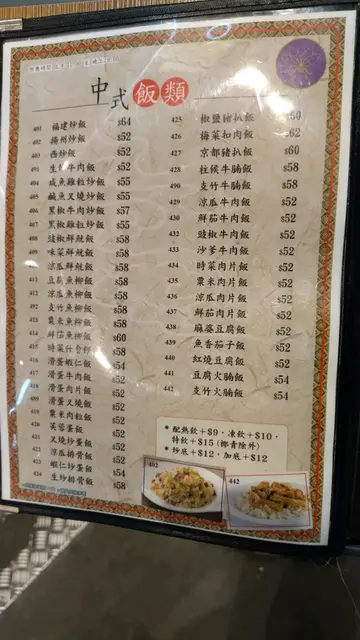 中式飯類
401 福建炒飯 $64
402 揚州炒飯 $52
403 西炒飯 $52
491 生炒牛肉飯 $52
404 咸魚雞粒炒飯 $55
405 鹹魚叉燒炒飯 $55
406 黑椒牛肉炒飯 $57
407 黑椒雞粒炒飯 $55
408 豉椒鮮魷飯 $58
409 味菜鮮魷飯 $58
410 涼瓜鮮魷飯 $58
411 豆腐魚柳飯 $58
412 涼瓜魚柳飯 $58
492 支竹魚柳飯 $58
413 粟米魚柳飯 $58
414 鮮茄魚柳飯 $60
415 時菜什會飯 $58
416 滑蛋蝦仁飯 $54
417 滑蛋牛肉飯 $52
418 滑蛋肉片飯 $52
489 滑蛋叉燒飯 $52
419 粟米肉粒飯 $52
420 芙蓉蛋飯 $52
421 叉燒炒蛋飯 $52
422 涼瓜排骨飯 $52
423 蝦仁炒蛋飯 $54
424 生炒排骨飯 $58
425 椒鹽豬扒飯 $60
426 梅菜扣肉飯 $62
427 京都豬扒飯 $60
428 柱候牛腩飯 $58
490 支竹牛腩飯 $58
429 涼瓜牛肉飯 $52
430 鮮茄牛肉飯 $52
432 豉椒牛肉飯 $52
433 沙爹牛肉飯 $52
434 時菜肉片飯 $52
435 粟米肉片飯 $52
436 涼瓜肉片飯 $52
437 鮮茄肉片飯 $52
438 麻婆豆腐飯 $52
439 魚香茄子飯 $52
440 紅燒豆腐飯 $52
441 豆腐火腩飯 $54
442 支竹火腩飯 $54
* 配熱飲+$9,凍飲+$10,
特飲+$15(椰青除外)
* 炒底+$12,加底+$12
402
442